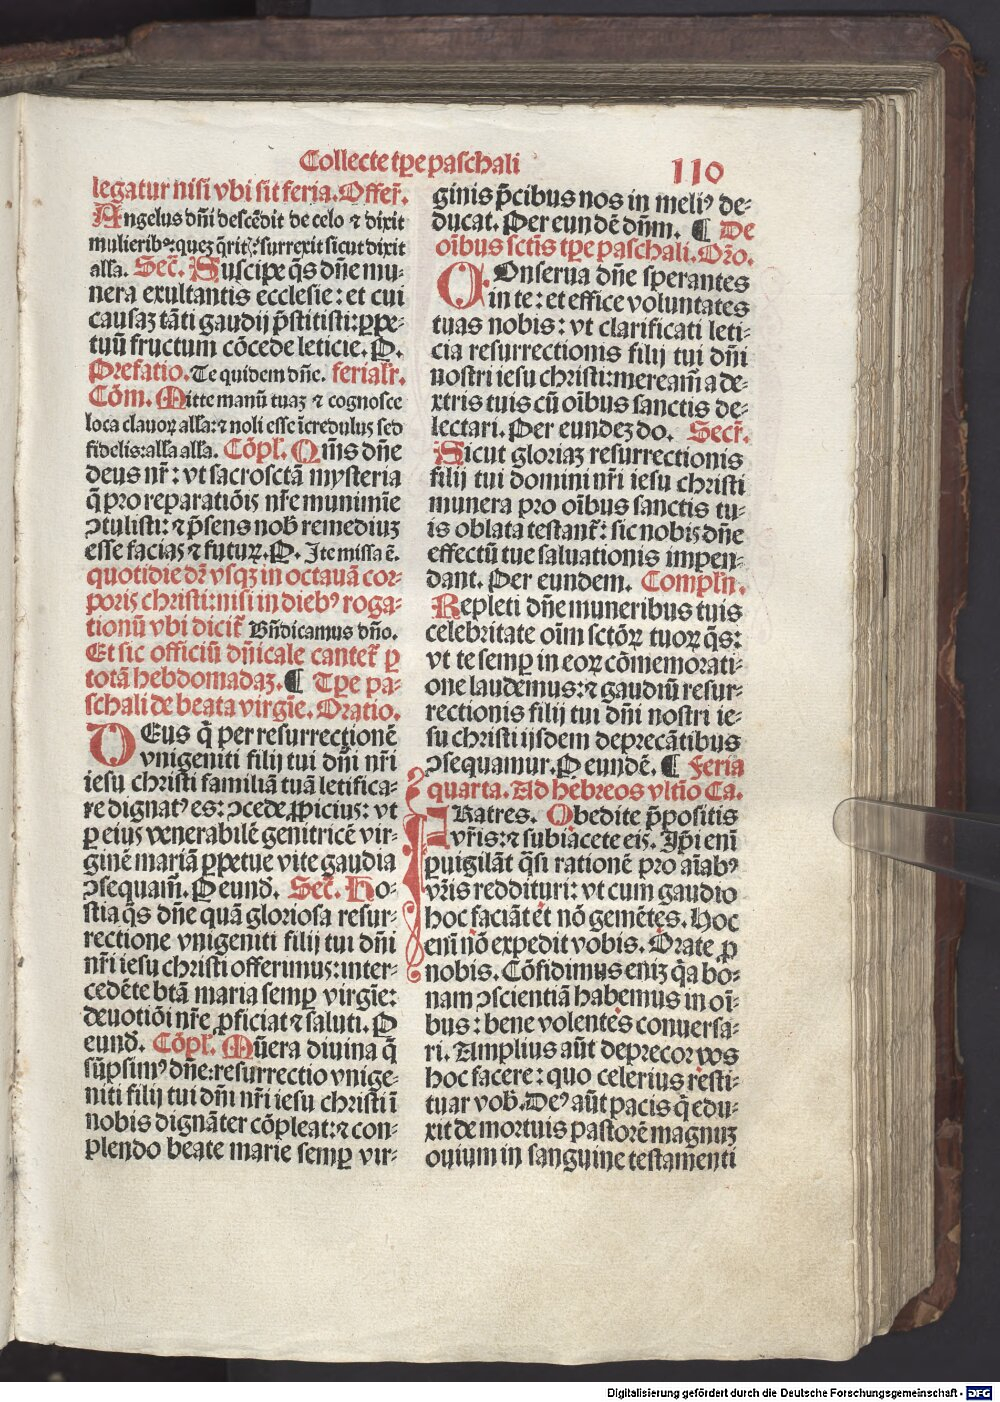 Collecte tp̄e paschali
110
legatur nisi vbi sit feria. Offer̄.
Angelus dn̄i descēdit de celo ⁊ dixit
mulierib⁹: quez q̄rit{is}: surrexit sicut dixit
all'a. Sec̄. Suscipe q̄s dn̄e mu-
nera exultantis ecclesie: et cui
causaz tāti gaudij p̄stitisti: ꝑpe-
tuū fructum cōcede leticie. P.
Prefatio. Te quidem dn̄e. ferialr̄.
Cōm. Mitte manū tuaz ⁊ cognosce
loca clauoꝝ all'a: ⁊ noli esse īcredulus sed
fidelis: all'a all'a. Cōpl'. Qm̄s dn̄e
deus nr̄: vt sacrosctā mysteria
q̄ pro reparatiōis nr̄e munimīe
ↄtulisti: ⁊ p̄sens nob̄ remediuz
esse facias ⁊ futuꝝ. P. Ite missa ē.
quotidie dr̄ vsqꝫ in octauā cor-
poris christi: nisi in dieb⁹ roga-
tionū vbi dicit̄ Bn̄dicamus dn̄o.
Et sic officiū dn̄icale cantet̄ ꝑ
totā hebdomadaz. ¶ Tp̄e pa-
schali de beata virgīe. Oratio.
DEus q̄ per resurrectionē
vnigeniti filij tui dn̄i nr̄i
iesu christi familiā tuā letifica-
re dignat⁹ es: ↄcede ꝓpicius: vt
ꝑ eius venerabilē genitricē vir-
ginē mariā ꝑpetue vite gaudia
ↄsequam̄. P eund̄. Sec̄. Ho-
stia q̄s dn̄e quā gloriosa resur-
rectione vnigeniti filij tui dn̄i
nr̄i iesu christi offerimus: inter-
cedēte btā maria semꝑ virgīe:
deuotiōi nr̄e ꝓficiat ⁊ saluti. P
eund̄. Cōpl'. Mūera diuina q̄
sūpsim⁹ dn̄e: resurrectio vnige-
niti filij tui dn̄i nr̄i iesu christi ī
nobis dignāter cōpleat: ⁊ con-
plendo beate marie semꝑ vir-
ginis p̄cibus nos in meli⁹ de-
ducat. Per eundē dn̄m. ¶ De
oībus sctīs tp̄e paschali. Orō.
COnserua dn̄e sperantes
in te: et effice voluntates
tuas nobis: vt clarificati leti-
cia resurrectionis filij tui dn̄i
nostri iesu christi: meream̄ a de-
xtris tuis cū oībus sanctis de-
lectari. Per eundez do. Secr̄.
Sicut gloriaz resurrectionis
filij tui domini nr̄i iesu christi
munera pro oībus sanctis tu-
is oblata testant̄: sic nobis dn̄e
effectū tue saluationis impen-
dant. Per eundem. Compln̄.
Repleti dn̄e muneribus tuis
celebritate oīm sctōꝝ tuoꝝ q̄s:
vt te semꝑ in eoꝝ cōmemorati-
one laudemus: ⁊ gaudiū resur-
rectionis filij tui dn̄i nostri ie-
su christi ijsdem deprecātibus
ↄsequamur. P eundē. ¶ Feria
quarta. Ad hebreos vltīo Ca.
FRatres. Obedite p̄positis
vr̄is: ⁊ subiacete eis. Ip̄i enī
ꝑuigilāt q̄si rationē pro aīab⁹
vr̄is reddituri: vt cum gaudio
hoc faciāt et nō gemētes. Hoc
enī nō expedit vobis. Orate ꝓ
nobis. Cōfidimus eniz q̄a bo-
nam ↄscientiā habemus in oī-
bus: bene volentes conuersa-
ri. Amplius aūt deprecor vos
hoc facere: quo celerius resti-
tuar vob̄. De⁹ aūt pacis q̄ edu-
xit de mortuis pastorē magnuz
ouium in sanguine testamenti
Digitalisierung gefördert durch die Deutsche Forschungsgemeinschaft - DFG